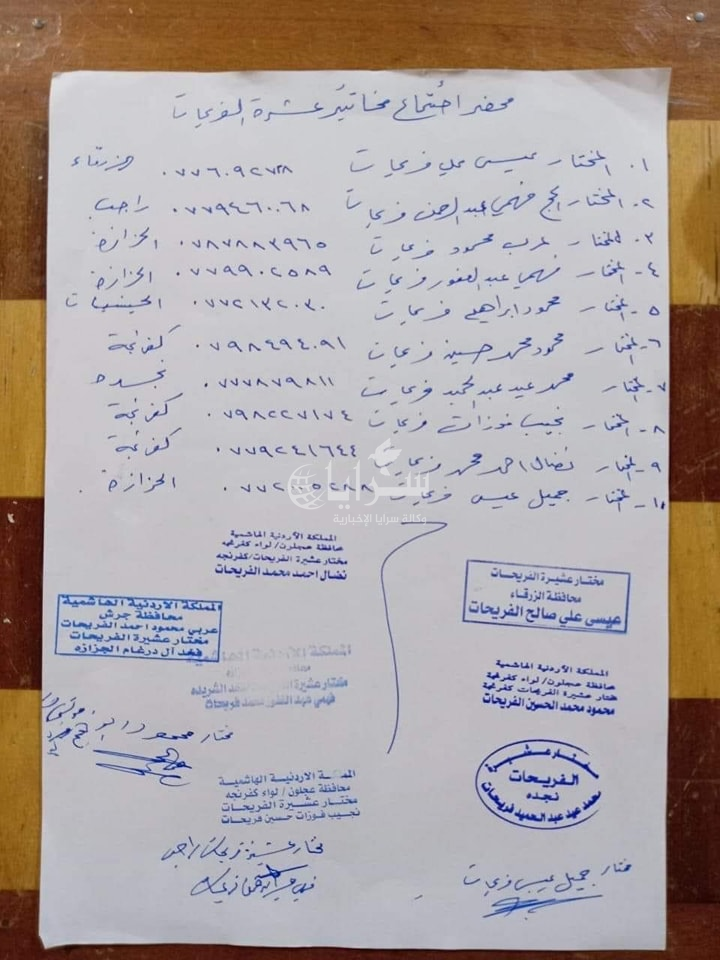 محضر اجتماع مخاتير عشيرة الفريحات
١. المختار عيسى علي فريحات ٠٧٧٦٠٩٢٧٣٨ الزرقاء
٢- المختار الحج فهمي عبدالرحمن فريحات ٠٧٧٩٤٦٠٠٦٨ راجب
٣. المختار عرب محمود فريحات ٠٧٨٧٨٨٣٩٦٥ الجزازة
٤- المختار فهمي عبدالغفور فريحات ٠٧٧٩٩٠٢٥٨٩ الجزازة
٥- المختار محمود ابراهيم فريحات ٠٧٧٢١٣٢٠٣٠ الحسينيات
٦- المختار محمود محمد حسين فريحات ٠٧٩٨٤٩٤٠٩١ كفرنجة
٧- المختار محمد عيد عبدالحميد فريحات ٠٧٧٧٨٧٩٨١١ نجده
٨- المختار نجيب فوزات فريحات ٠٧٩٨٢٢٧١٧٤ كفرنجة
٩- المختار نضال احمد محمد فريحات ٠٧٧٩٢٤١٦٤٤ كفرنجة
١٠- المختار جميل عيسى فريحات الجزازة
سرايا
وكالة سرايا الإخبارية
المملكة الأردنية الهاشمية
محافظة عجلون/ لواء كفرنجه
مختار عشيرة الفريحات/كفرنجه
نضال احمد محمد الفريحات
مختار عشيرة الفريحات
محافظة الزرقاء
عيسى علي صالح الفريحات
المملكة الاردنية الهاشمية
محافظة جرش
عربي محمود احمد الفريحات
مختار عشيرة الفريحات
فخد آل درغام الجزازه
المملكة الاردنية الهاشمية
مختار عشيرة
فهمي عبد الغفور محمد فريحات
المملكة الأردنية الهاشمية
محافظة عجلون/ لواء كفرنجة
مختار عشيرة الفريحات كفرنجة
محمود محمد الحسين الفريحات
مختار محمود
مختار عشيرة
الفريحات
نجده
محمد عيد عبدالحميد فريحات
المملكة الاردنية الهاشمية
محافظة عجلون / لواء كفرنجه
مختار عشيرة الفريحات
نجيب فوزات حسين فريحات
مختار عشيرة فريحات راجب
مختار جميل عيسى فريحات